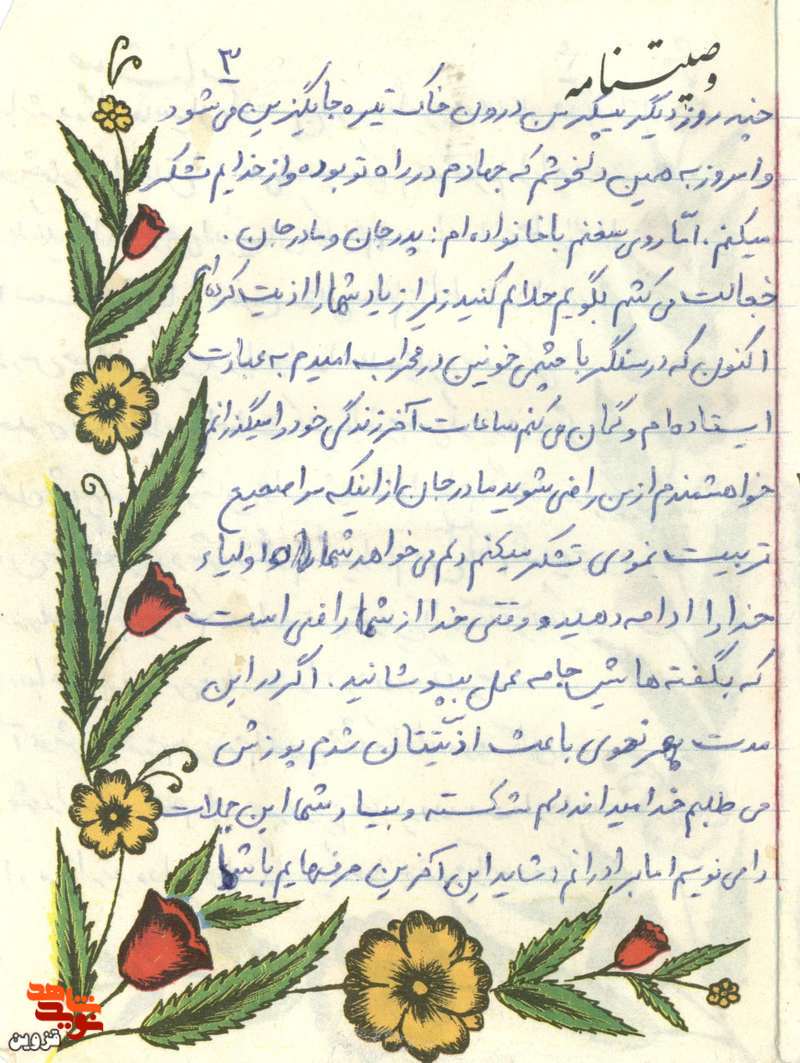 وصیتنامه
۳
چند روز دیگر پیکرمن درون خاک تیره جایگزین می شود
و امروز به همین دلخوشم که جهادم در راه تو بوده و از خدایم تشکر
میکنم . امّا روی سخنم با خانواده ام : پدر جان و مادر جان .
خجالت می کشم بگویم حلالم کنید زیرا زیاد شما را اذیت کرده ام
اکنون که در سنگر با چشمی خونین در محراب امیدم به عبارت
ایستاده ام و گمان می کنم ساعات آخر زندگی خود را میگذرانم
خواهشمندم از من راضی شوید مادر جان از اینکه مرا صحیح
تربیت نمودی تشکر میکنم دلم می خواهد شما راه اولیاء
خدا را ادامه دهید و وقتی خدا از شما راضی است
که بگفته هایش جامه عمل بپوشانید . اگر در این
مدت بهر نحوی باعث اذیّتتان شدم پوزش
می طلبم خدا میداند دلم شکسته و بیاد شما این جملات
را می نویسم اما برادرانم شاید این آخرین حرفهایم با شما
نوید شاهد
قزوین